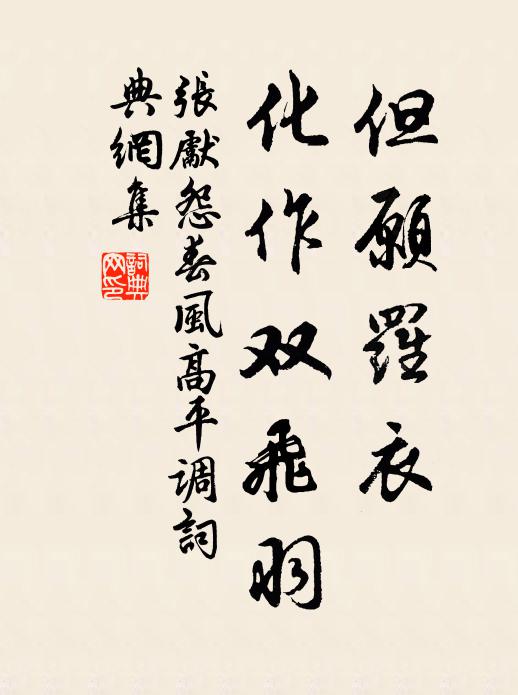 但願羅衣
化作双飛羽
張獻怨春風高平調詞
典網集
詞典网印